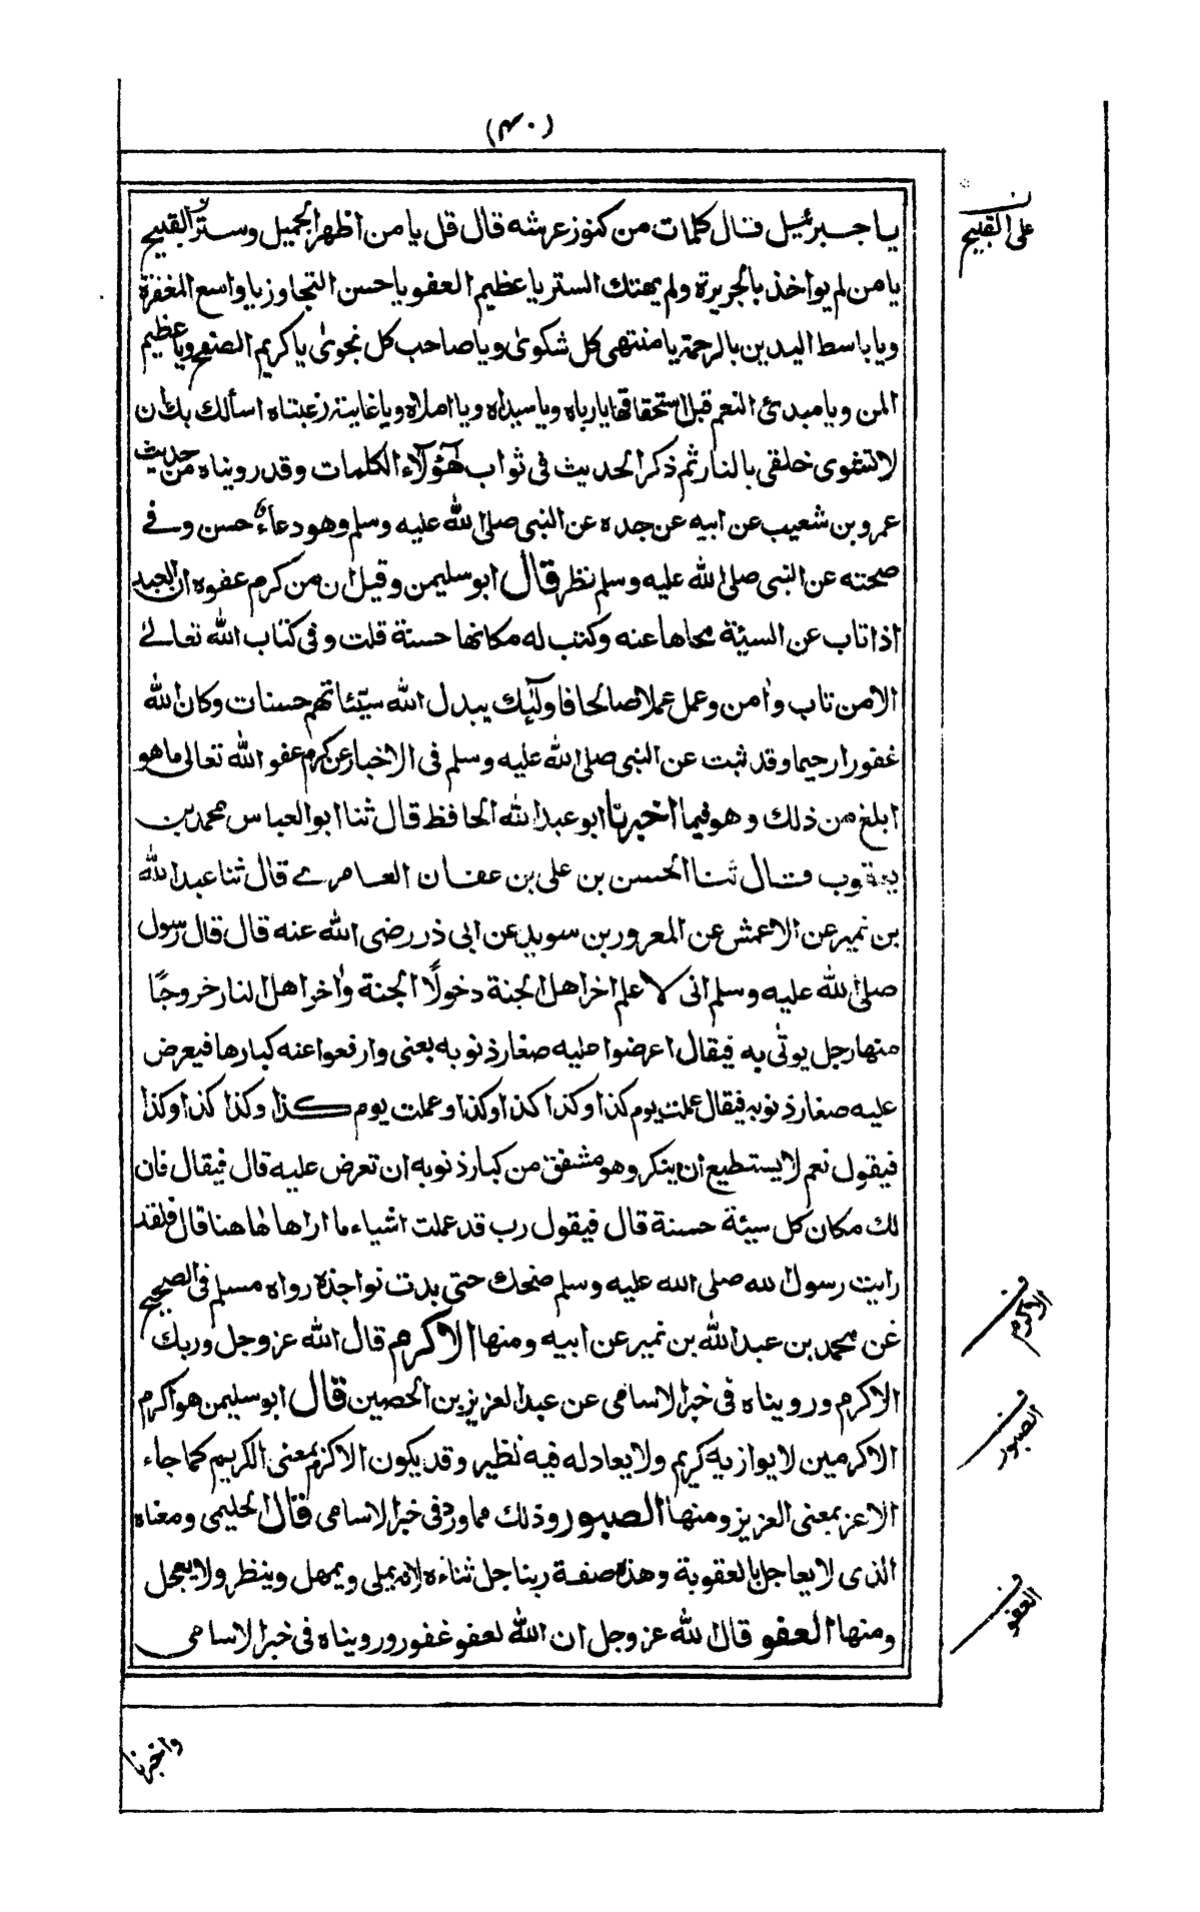 (۴۰)
يا جبرئيل فقال كلمات من كنوز عرشه قال قل يا من اظهر الجميل وستر القبيح
يا من لم يواخذ بالجريرة ولم يهتك الستر يا عظيم العفو يا حسن التجاوز يا واسع المغفرة
ويا باسط اليدين بالرحمة يا منتهى كل شكوى ويا صاحب كل نجوى يا كريم الصفح ويا عظيم
المن ويا مبدئ النعم قبل استحقاقها يا رباه ويا سيداه ويا املاه ويا غاية رغبتاه اسألك بك ان
لا تشوى خلقى بالنار ثم ذكر الحديث فى ثواب هؤلآء الكلمات وقد رويناه من حديث
عمرو بن شعيب عن ابيه عن جده عن النبى صلى الله عليه وسلم وهو دعاء حسن وفے
صحته عن النبى صلى الله عليه وسلم نظر قال ابو سليمن وقيل ان من كرم عفوه ان العبد
اذا تاب عن السيئة محاها عنه وكتب له مكانها حسنة قلت وفى كتاب الله تعالے
الا من تاب وٰامن وعمل عملا صالحا فاولٓئك يبدل الله سيّئاتهم حسنات وكان الله
غفورا رحيما وقد ثبت عن النبى صلى الله عليه وسلم فى الاخبار عن كرم عفو الله تعالى ما هو
ابلغ من ذلك وهو فيما اخبرنا ابو عبد الله الحافظ قال ثنا ابو العباس محمد بن
يعقوب قال ثنا الحسن بن على بن عفان العامرے قال ثنا عبد الله
بن نمير عن الاعمش عن المعرور بن سويد عن ابى ذر رضى الله عنه قال قال رسول
صلى الله عليه وسلم انى لا علم اخر اهل الجنة دخولًا الجنة وٰاخر اهل النار خروجًا
منها رجل يوتٰى به فيقال اعرضوا عليه صغار ذنوبه يعنى وارفعوا عنه كبارها فيعرض
عليه صغار ذنوبه فيقال عملت يوم كذا وكذا كذا وكذا وعملت يوم كذا وكذا كذا وكذا
فيقول نعم لا يستطيع ان ينكر وهو مشفق من كبار ذنوبه ان تعرض عليه قال فيقال فان
لك مكان كل سيئة حسنة قال فيقول رب قد عملت اشياء ما اراها هاهنا قال فلقد
رايت رسول الله صلى الله عليه وسلم ضحك حتى بدت نواجذه رواه مسلم فى الصحيح
عن محمد بن عبد الله بن نمير عن ابيه ومنها الاكرم قال الله عز وجل وربك
الاكرم ورويناه فى خبر الاسامى عن عبد العزيز بن الحصين قال ابو سليمن هو اكرم
الاكرمين لا يوازيه كريم ولا يعادله فيه نظير وقد يكون الاكرم بمعنى الكريم كما جاء
الاعز بمعنى العزيز ومنها الصبور وذلك مما ورد فى خبر الاسامى قال الحليمى ومعناه
الذى لا يعاجل بالعقوبة وهذه صفة ربنا جل ثناءه لانه يملى ويمهل وينظر ولا يعجل
ومنها العفو قال الله عز وجل ان الله لعفو غفور ورويناه فى خبر الاسامى
ن
على القبيح
ف
الاكرم
ف
الصبور
ف
العفو
واخبرنا